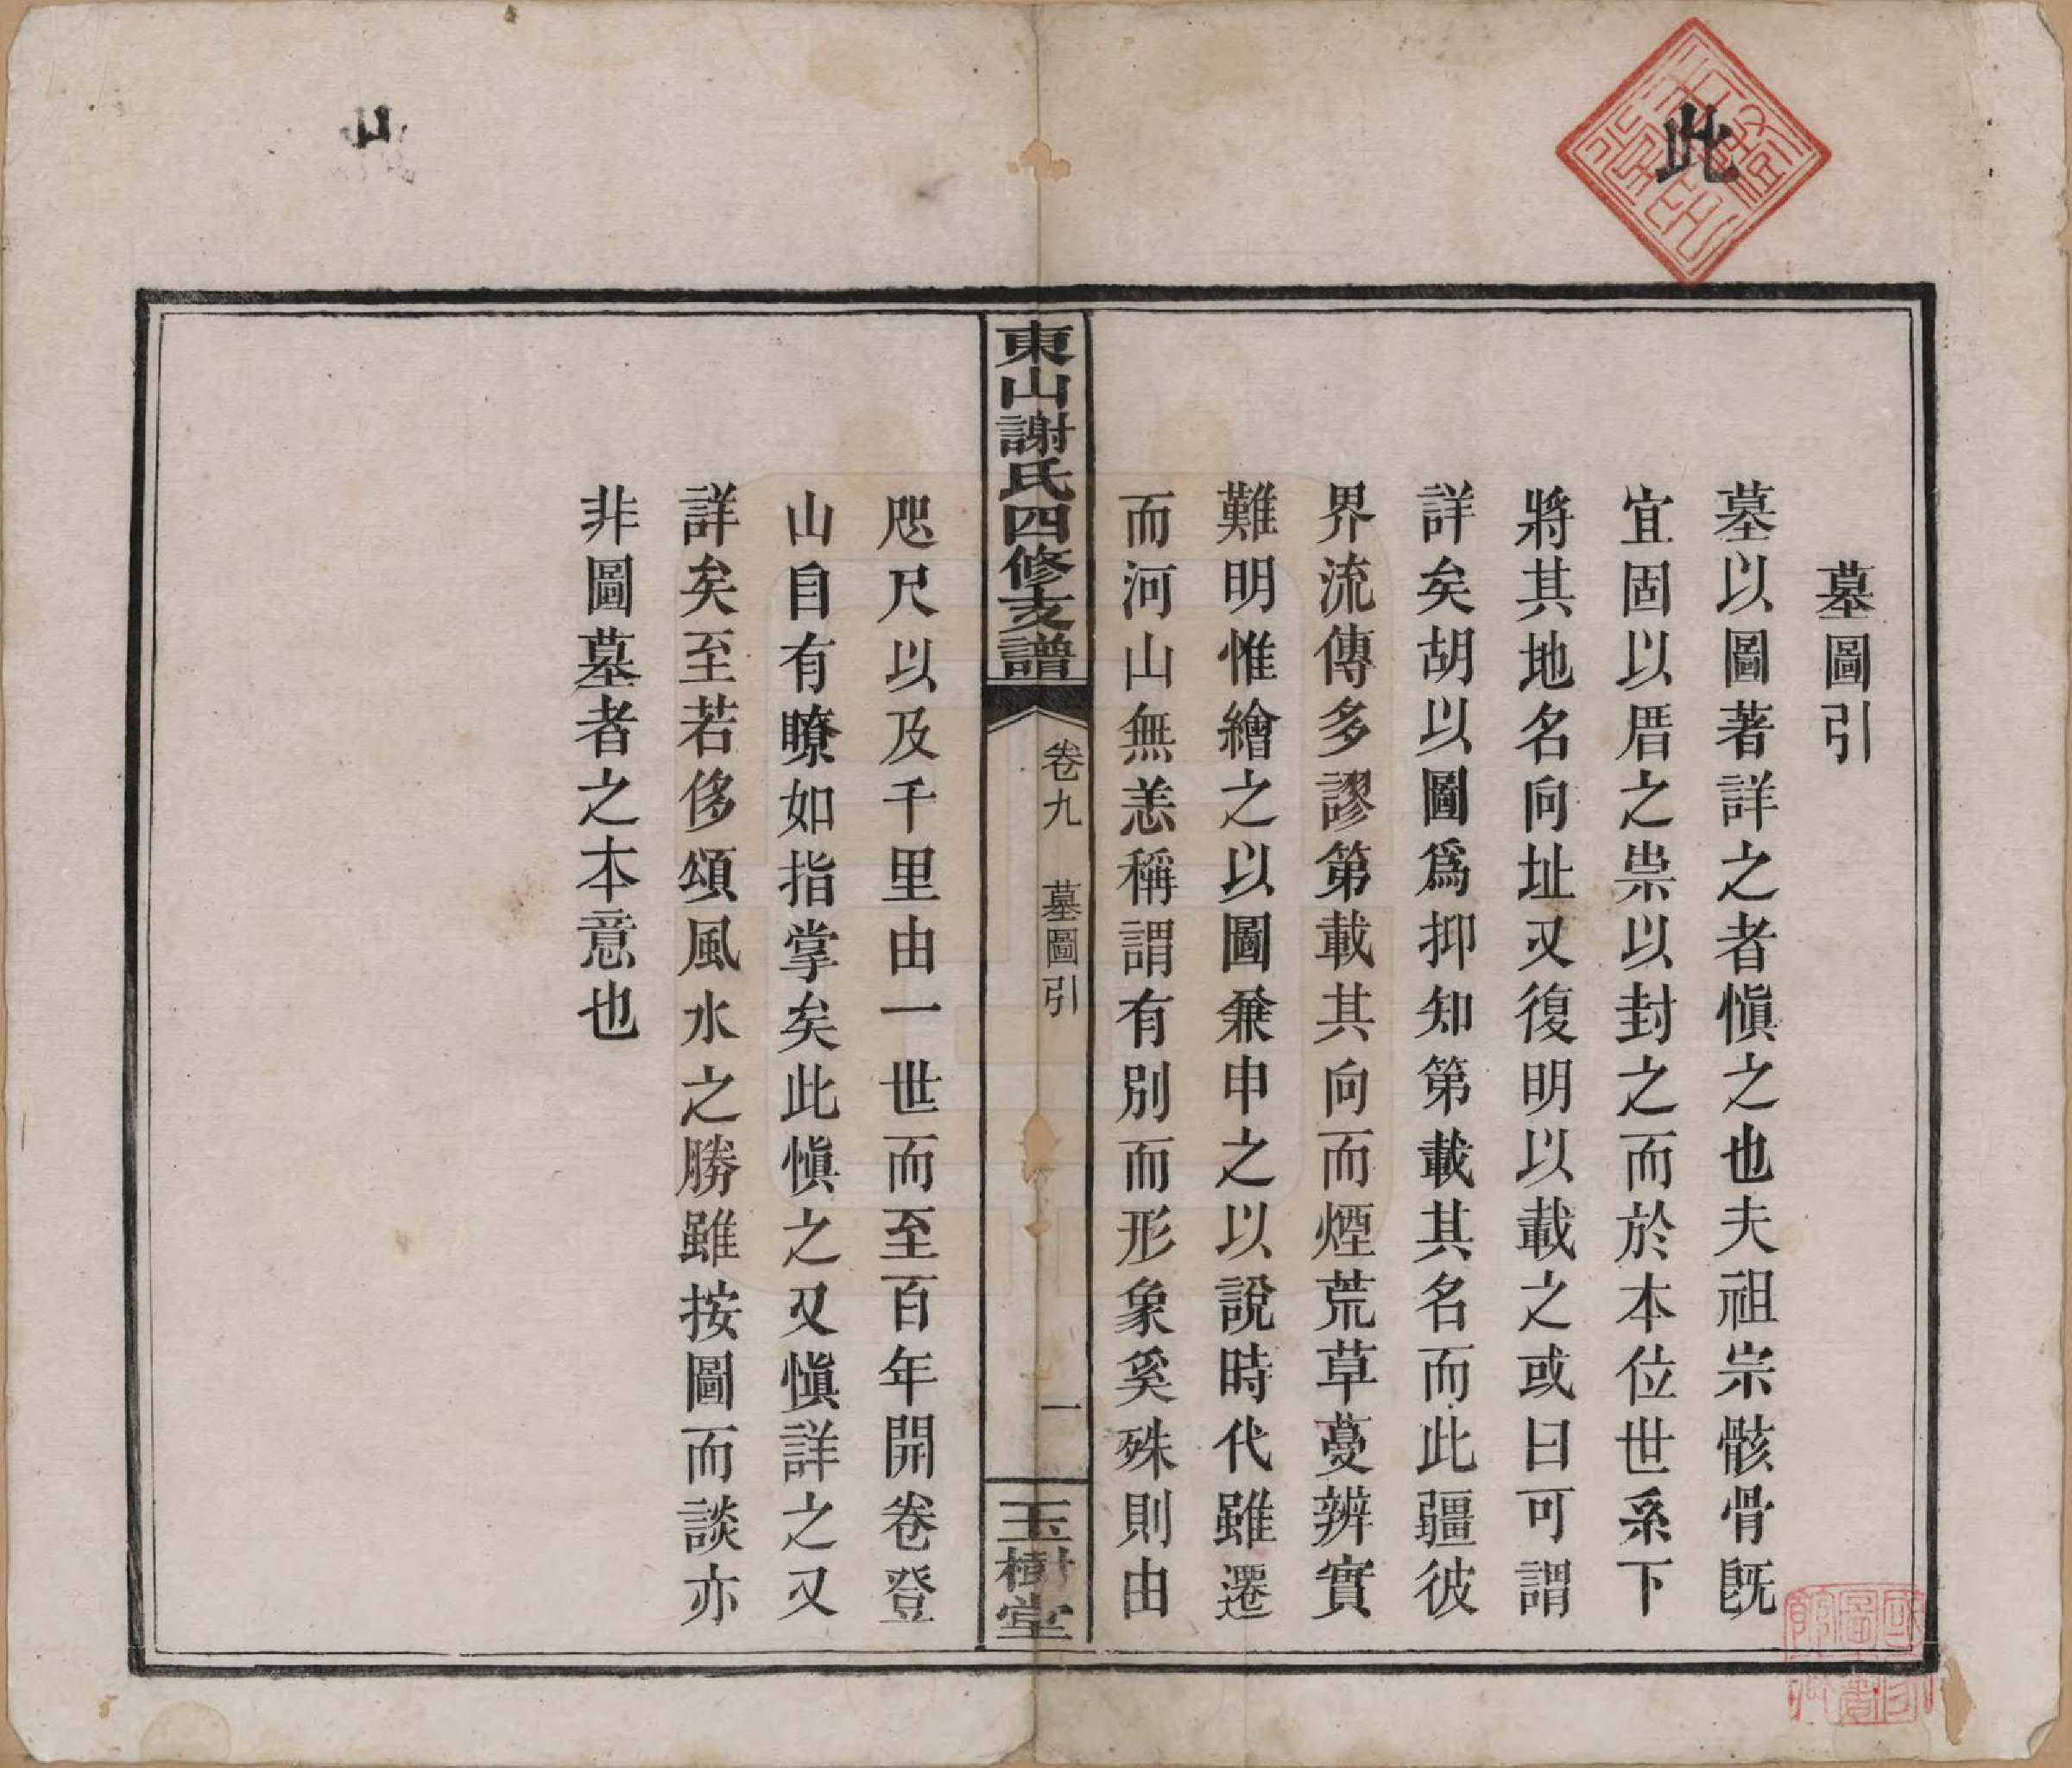 此
墓圖引
墓以圖著詳之者愼之也夫祖宗骸骨旣
宜固以厝之祟以封之而於本位世系下
將其地名向址又復明以載之或曰可謂
詳矣胡以圖爲抑知第載其名而此疆彼
界流傳多謬第載其向而煙荒草蔓辨實
難明惟繪之以圖兼申之以說時代雖遷
而河山無恙稱謂有別而形象奚殊則由
東山謝氏四修支譜
卷九　墓圖引
一
玉樹堂
咫尺以及千里由一世而至百年開卷登
山自有瞭如指掌矣此愼之又愼詳之又
詳矣至若侈頌風水之勝雖按圖而談亦
非圖墓者之本意也